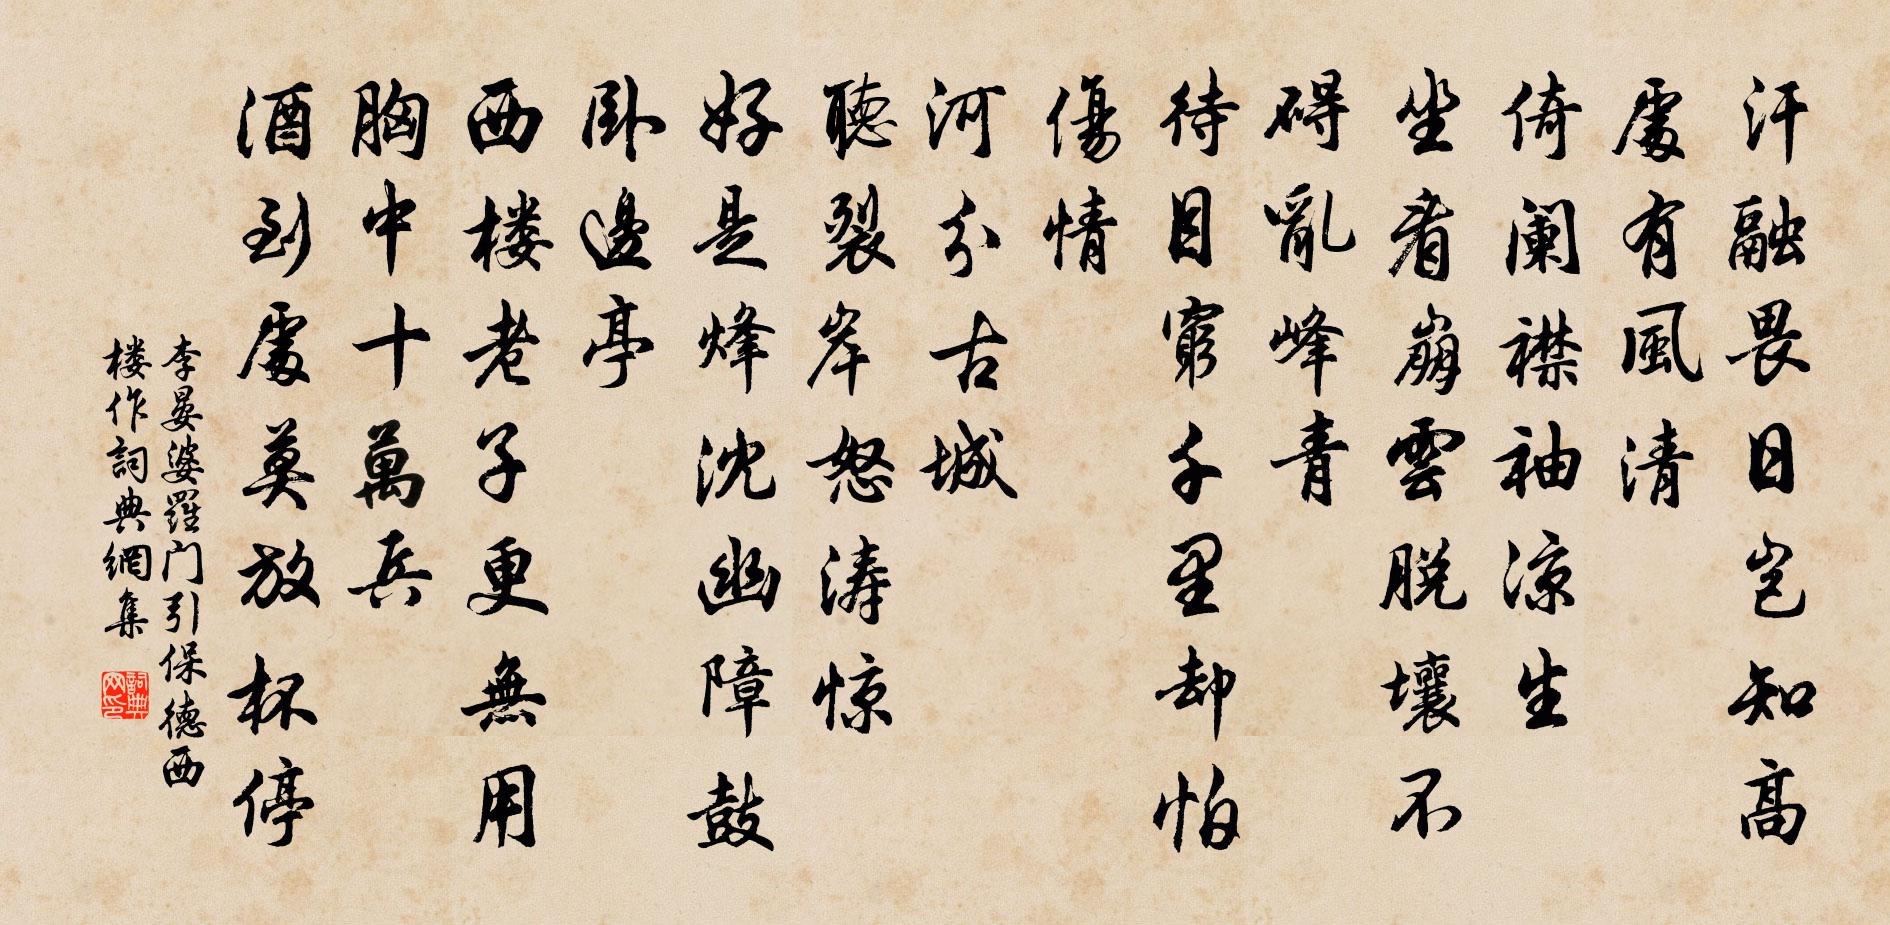 汗融畏日岂知高
處有風清
倚阑襟袖凉生
坐看崩雲脱壤不
碍亂峰青
待目窮千里却怕
傷情
河分古城
聽裂岸怒涛惊
好是烽沈幽障鼓
卧邊亭
西楼老子更無用
胸中十萬兵
酒到處莫放杯停
李晏婆羅门引保德西
楼作詞典網集
詞典
网印